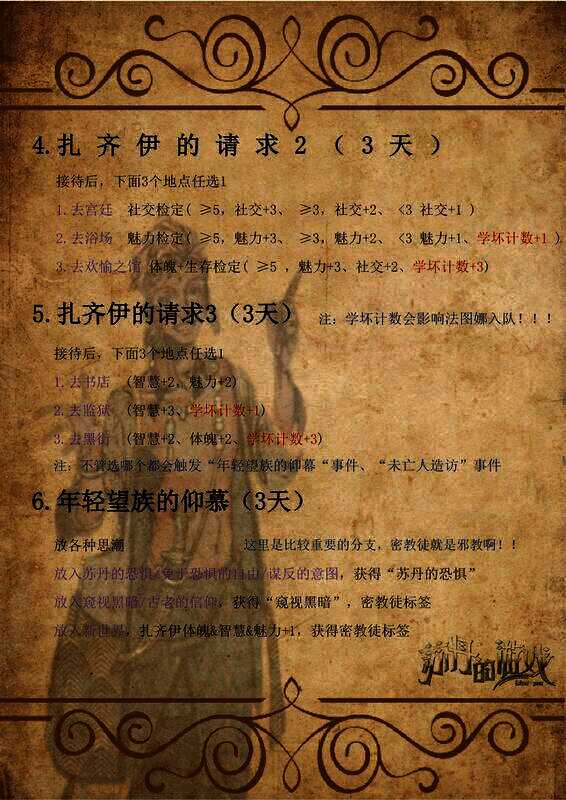 4.扎齐伊的请求2（3天）
接待后，下面3个地点任选1
1.去宫廷 社交检定( ≥5，社交+3、 ≥3，社交+2、 <3 社交+1 )
2.去浴场 魅力检定( ≥5，魅力+3、 ≥3，魅力+2、 <3 魅力+1、学坏计数+1 )
3.去欢愉之馆 体魄+生存检定( ≥5 ，魅力+3、社交+2、学坏计数+3)
5.扎齐伊的请求3（3天） 注：学坏计数会影响法图娜入队！！！
接待后，下面3个地点任选1
1.去书店 (智慧+2，魅力+2)
2.去监狱 (智慧+3、学坏计数+1)
3.去黑街 (智慧+2、体魄+2、学坏计数+3)
注：不管选哪个都会触发“年轻望族的仰慕“事件、“未亡人造访”事件
6.年轻望族的仰慕（3天）
放各种思潮 这里是比较重要的分支，密教徒就是邪教啊！！
放入苏丹的恐惧/免于恐惧的自由/谋反的意图，获得“苏丹的恐惧”
放入窥视黑暗/古老的信仰，获得“窥视黑暗”，密教徒标签
放入新世界，扎齐伊体魄&智慧&魅力+1，获得密教徒标签
苏丹的游戏